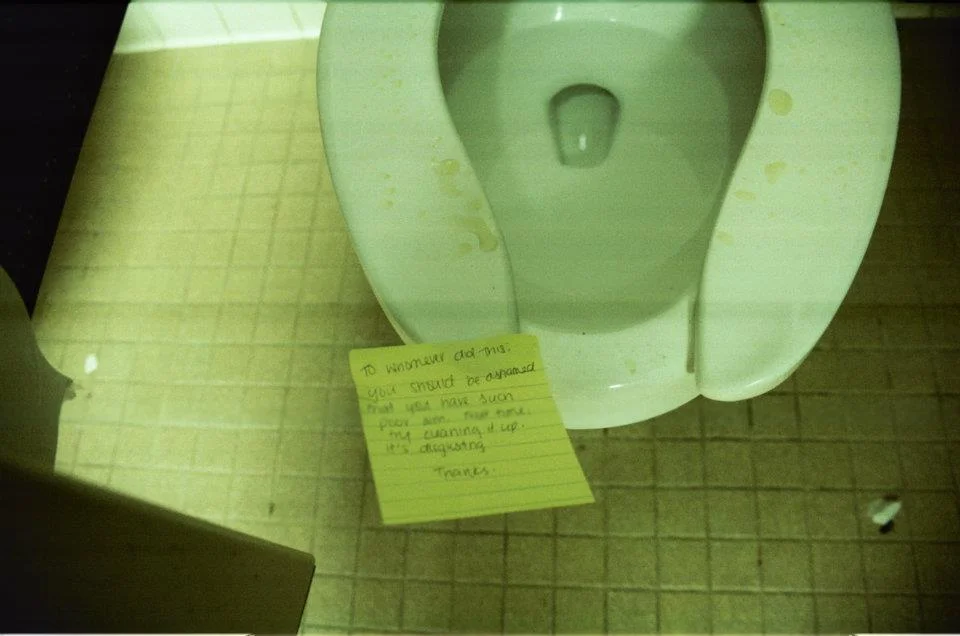 To whomever did this:
you should be ashamed
that you have such
poor aim. Next time,
try cleaning it up.
it's disgusting
Thanks.